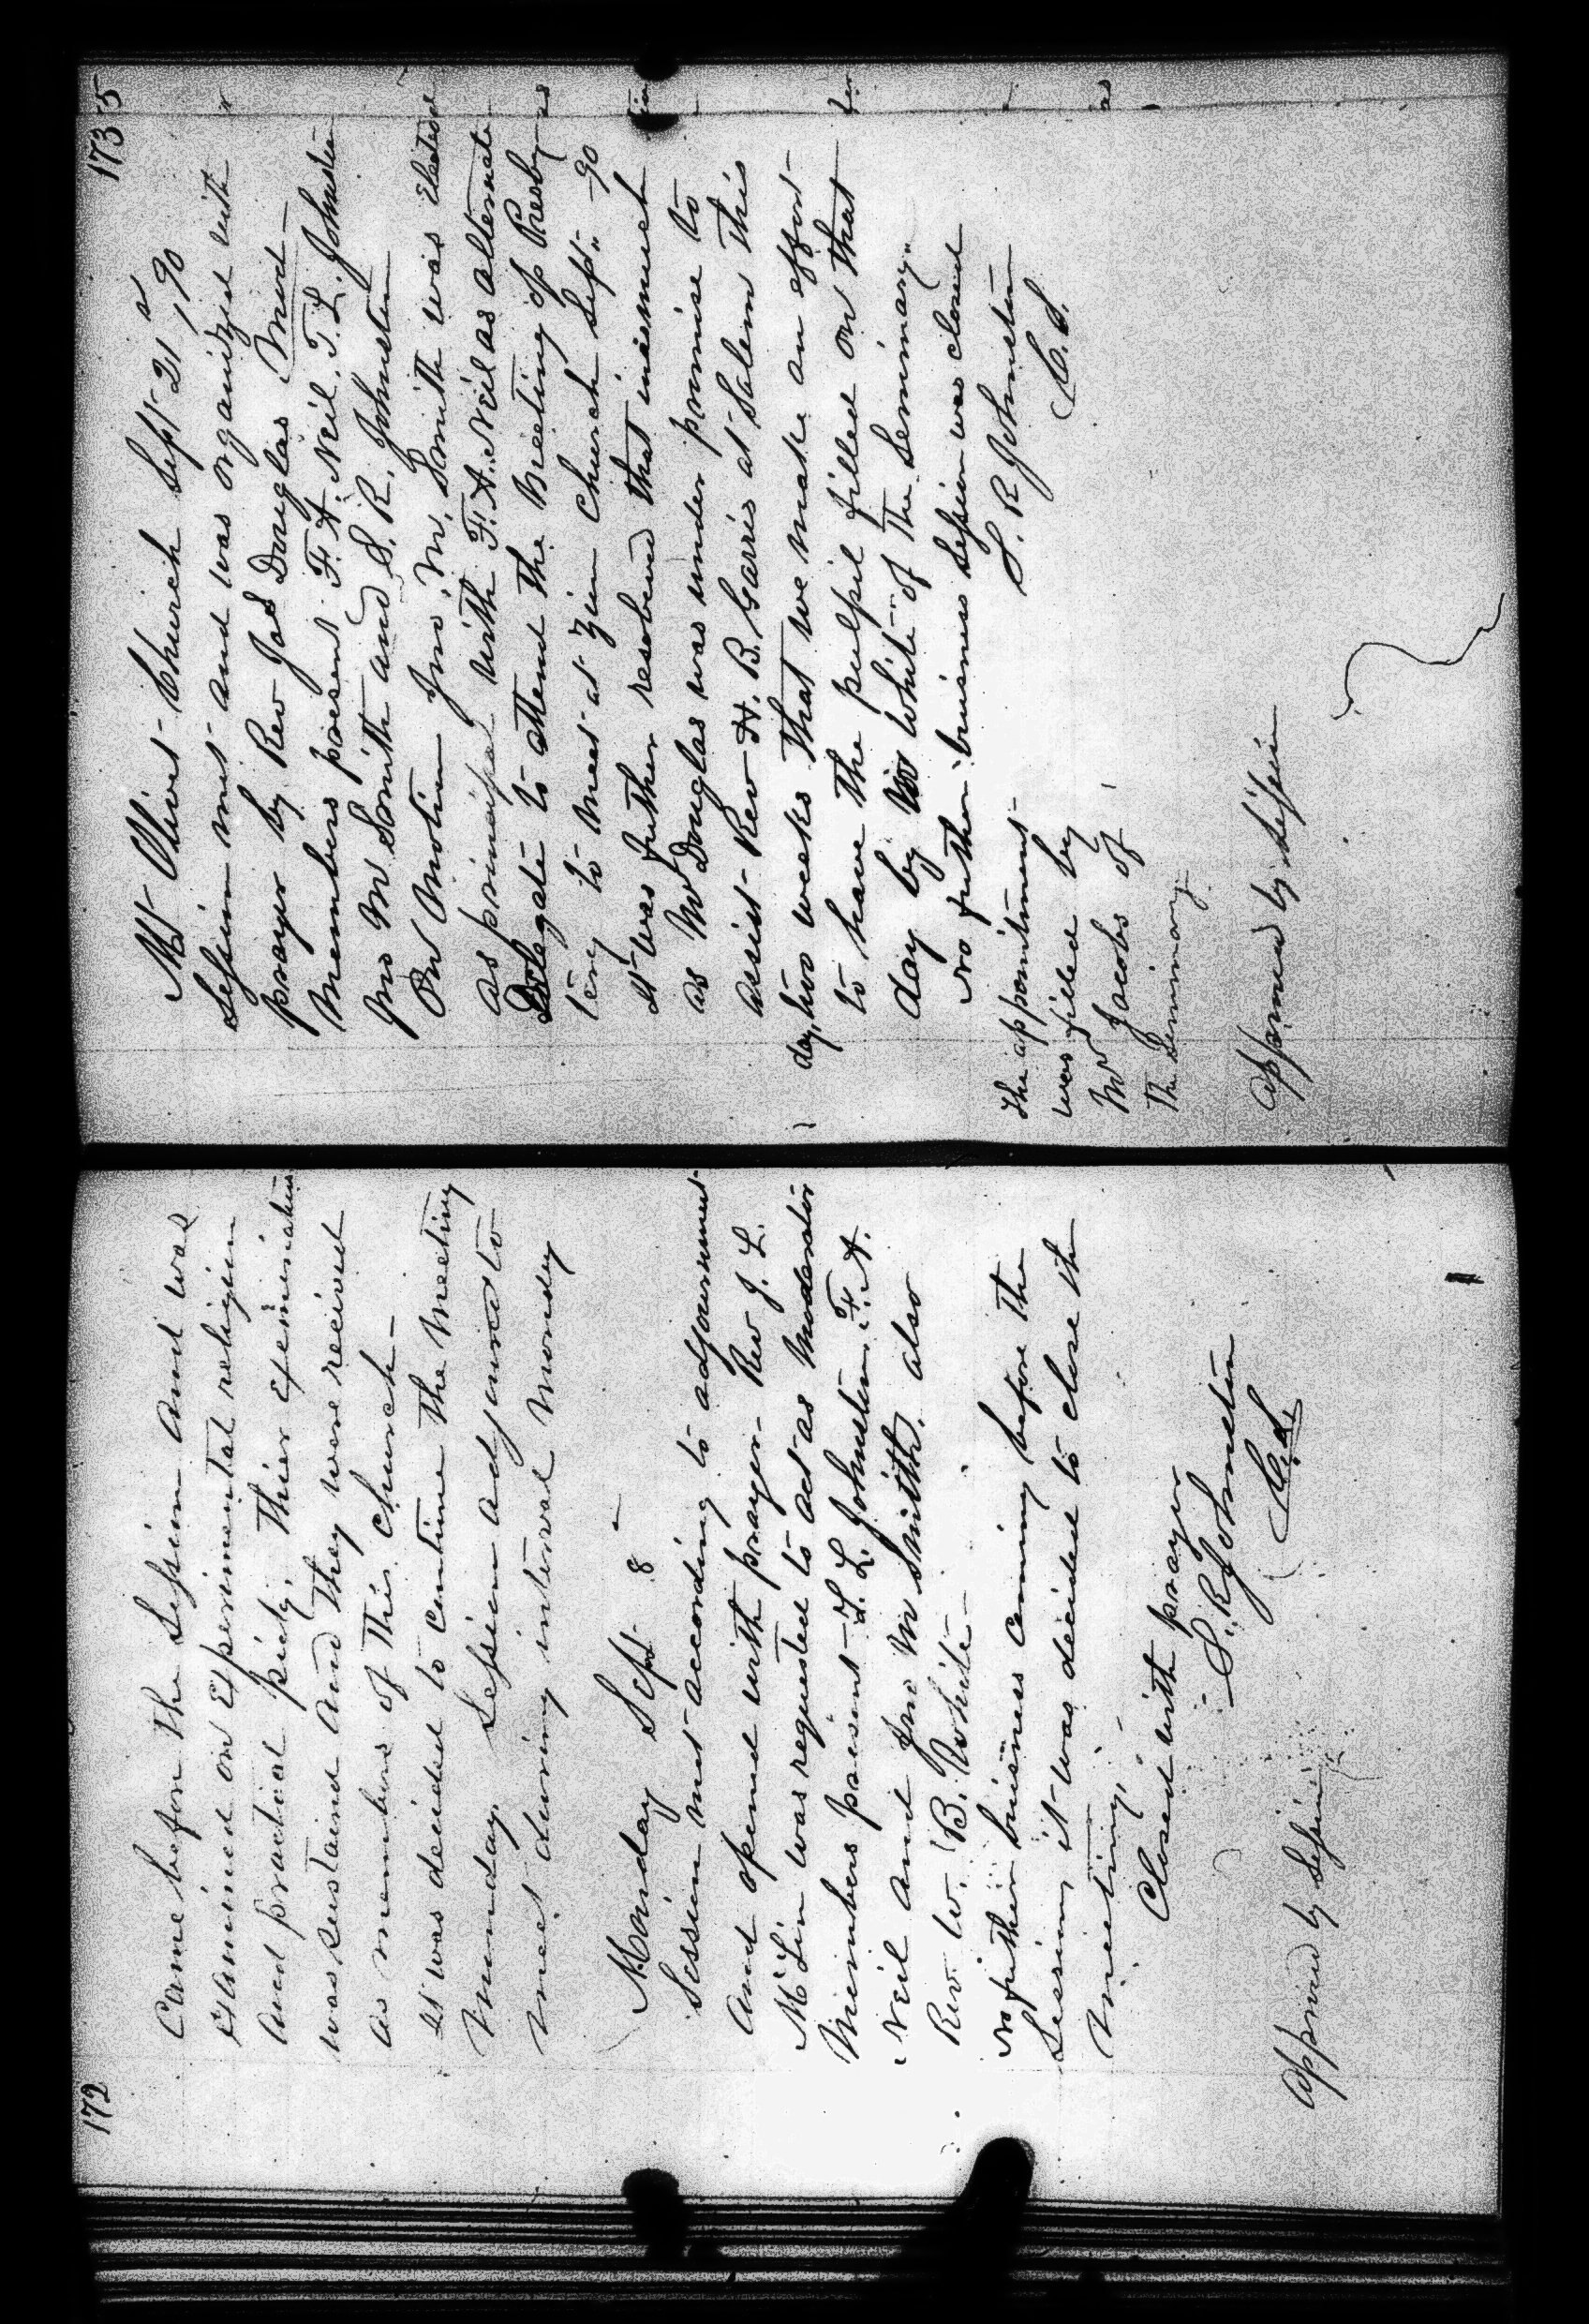 172
Came before the Session and was
examined on experimental religion
and practical piety, Thier examination
was sustained and they were received
as members of this church-
It was decided to continue the meeting
Monday. Session adjourned to
meet during interval Monday
Monday Sept 8 -
Session met according to adjournment
and opened with prayer- Rev J. L.
McLin was requested to act as Moderator
Members present- T. L. Johnston. F. A.
Neil and Jno M Smith, also
Rev. W. B. White-
No further business coming before the
Session, it was decided to close the
meeting.
Closed with prayer
S. R Johnston
C. S.
approved by Session
173
Mt Olivet Church Sept 21, 90
Session met and was organized with
prayer by Rev Jas Douglas Mod-
Members present F. A. Neil. T. L. Johnston
Jno M Smith and S. R. Johnston
On Motion Jno. M. Smith was Elected
as principal with F. A. Neil as alternate
Delegate to attend the meeting of Presby-
tery to meet at Zion Church Sept- 90
It was further resolved that inasmuch
as Mr Douglas was under promise to
assist Rev H. B. Garris at Salem this
day, two weeks That we make an effort-
to have the pulpit filled on that
day by Mr White of The Seminary.
No further business Session was closed
S. R Johnston
C. S.
The appointment
was filled by
Mr Jacobs of
The Seminary-
approved by Session